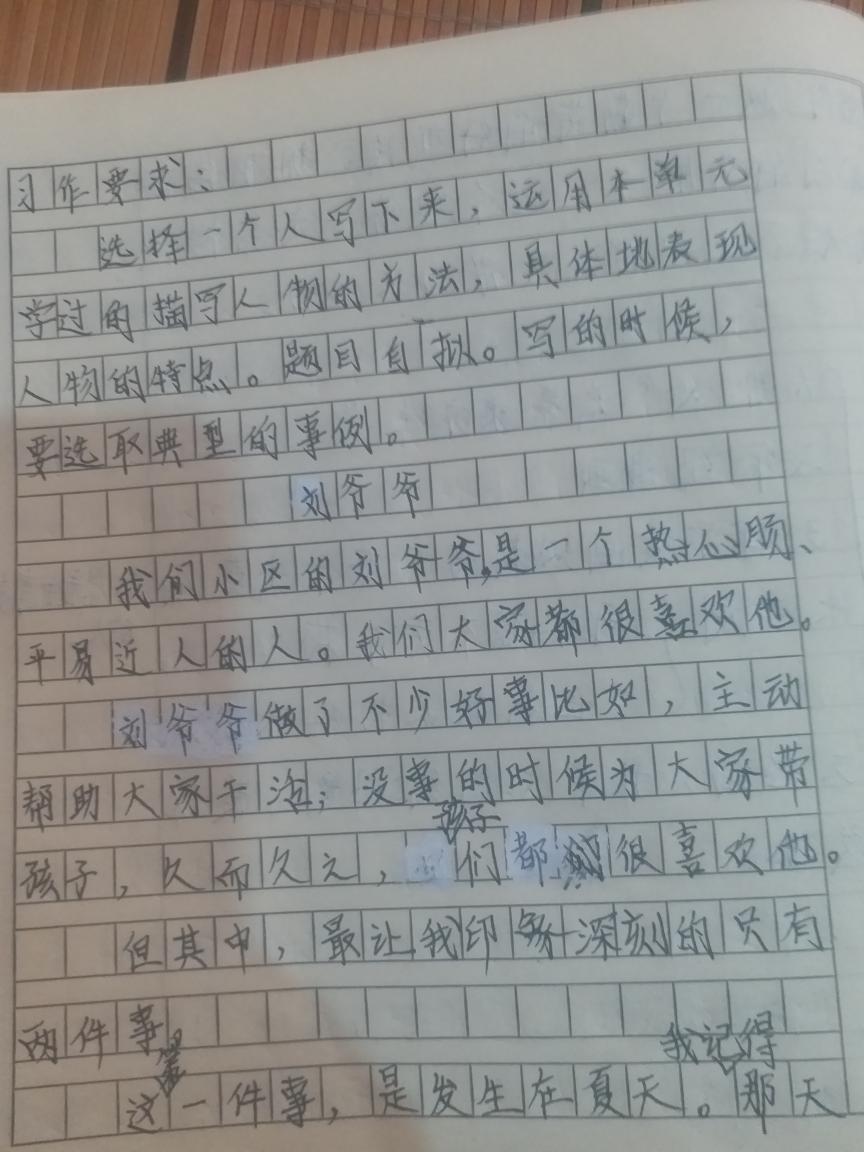 习作要求：
选择一个人写下来，运用本单元
学过的描写人物的方法，具体地表现
人物的特点。题目自拟。写的时候，
要选取典型的事例。
刘爷爷
我们小区的刘爷爷，是一个热心肠、
平易近人的人。我们大家都很喜欢他。
刘爷爷做了不少好事比如，主动
帮助大家干活；没事的时候为大家带
孩子，久而久之，孩子们都很喜欢他。
但其中，最让我印象深刻的只有
两件事
这第一件事，是发生在夏天。我记得那天